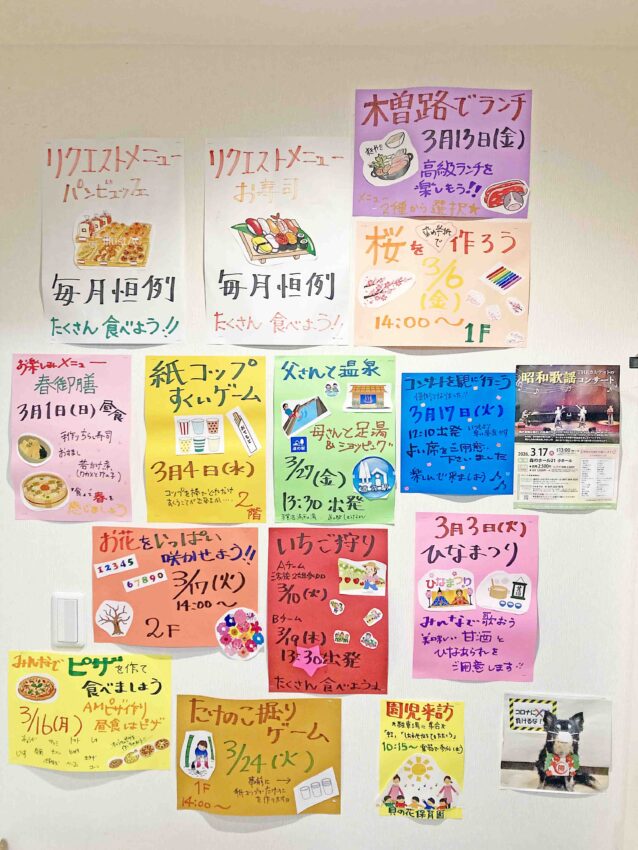 リクエストメニュー
パンビュッフェ
毎月恒例
たくさん食べよう!!
リクエストメニュー
お寿司
毎月恒例
たくさん食べよう!!
木曽路でランチ
3月13日(金)
高級ランチを
楽しもう!!
メニュー
2種から選択★
桜を作ろう
3/6
(金)
14:00〜
1F
お楽しみメニュー
春御膳
3月1日(日)昼食
手作りちらし寿司
感じましょう
紙コップ
すくいゲーム
3月4日(水)
2階
父さんで温泉
母さんと足湯
&ショッピング
3/27(金)
13:30出発
コンサートを観に行こう
3月17日(火)
12:10出発
よい席をご用意
下さいました
楽しんで来ましょう♪
昭和歌謡
コンサート
2026.3.17
森のホール21 小ホール
お花をいっぱい
咲かせよう!!
12345
67890
3/17(火)
14:00〜
2F
いちご狩り
Aチーム
3/10(火)
Bチーム
3/19(木)
13:30出発
たくさん食べよう
3月3日(火)
ひなまつり
ひなまつり
みんなで歌おう
美味しい甘酒と
ひなあられを
ご用意します
みんなでピザを作って
食べましょう
3/16(月)
AMピザ作り
昼食はピザ
たけのこ掘り
ゲーム
3/24(火)
1F
14:00〜
園児来訪
10:15〜
貝の花保育園
コロナに
負けるな!